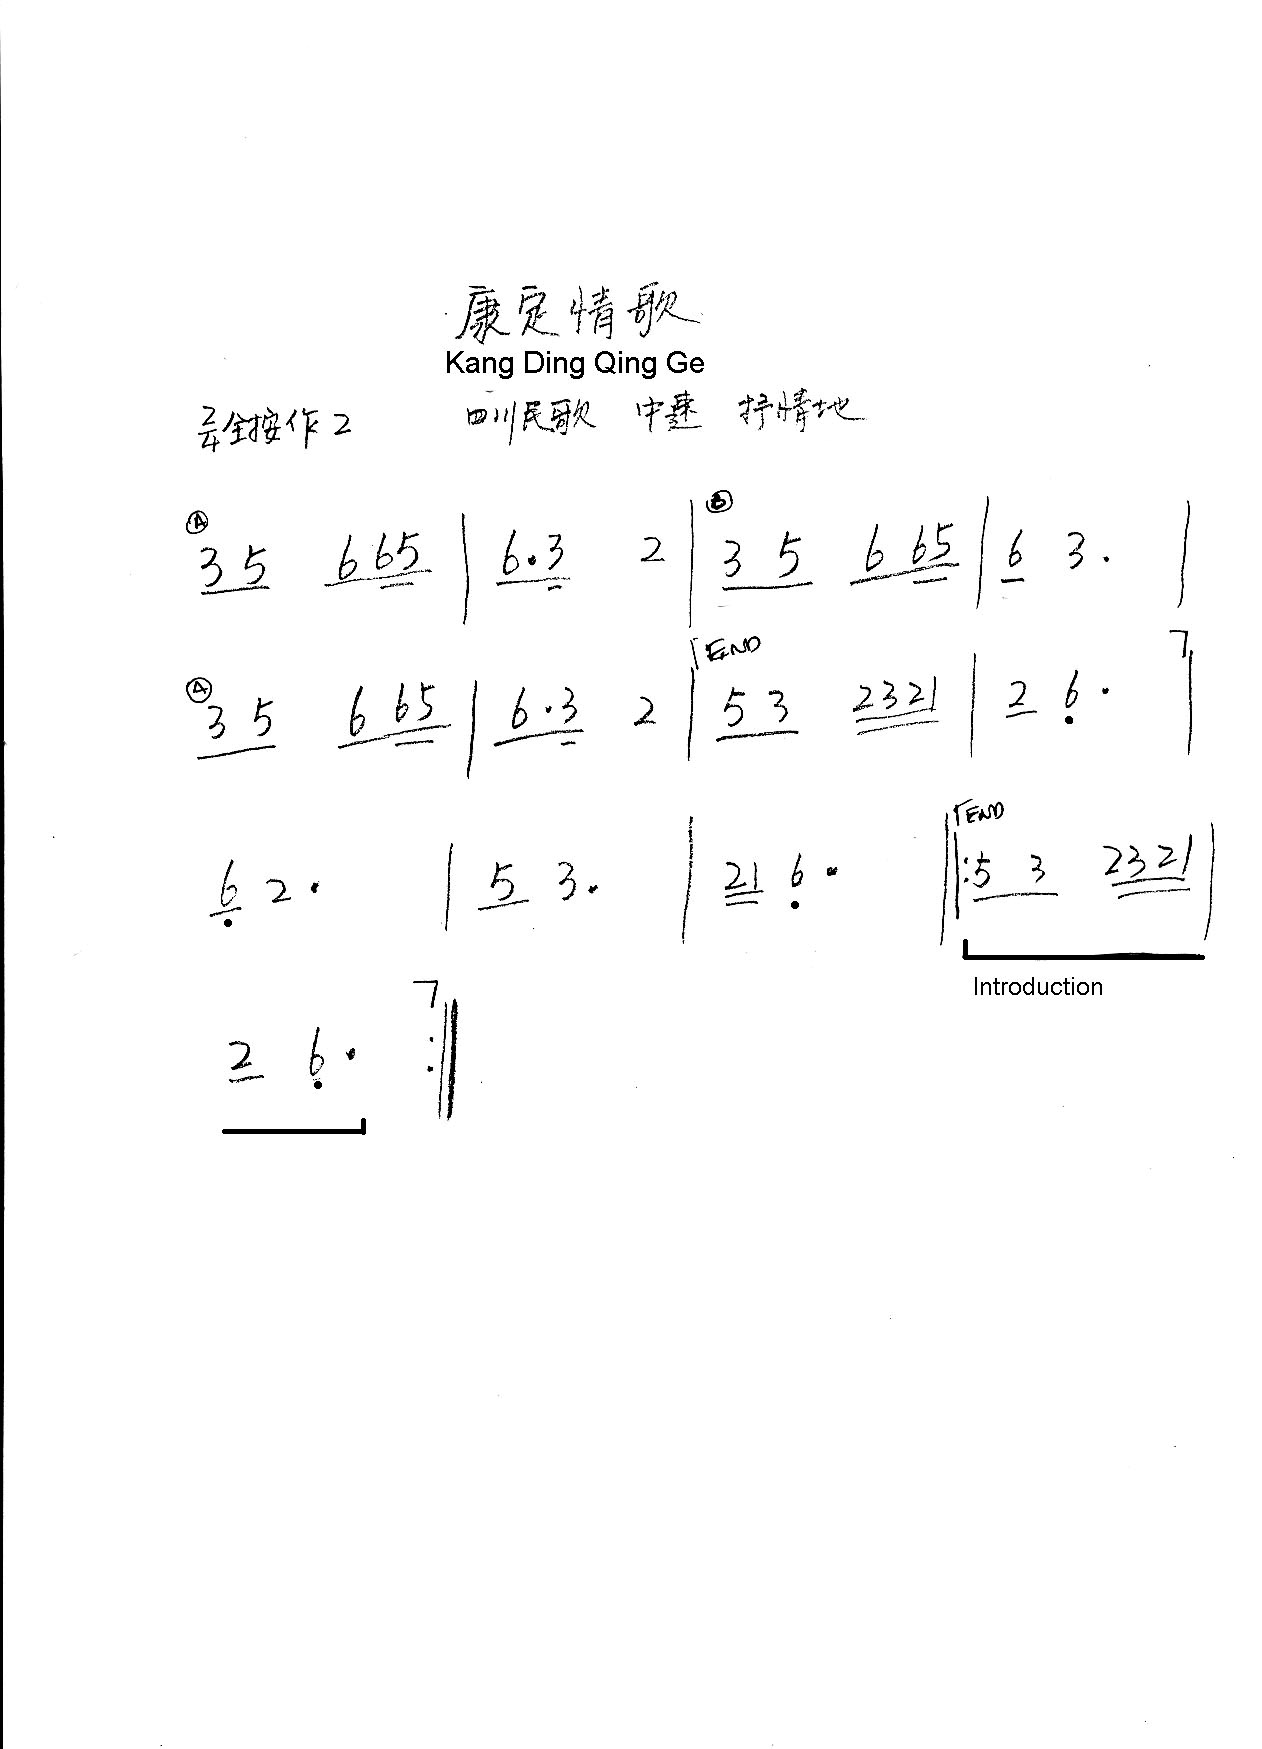 康定情歌
Kang Ding Qing Ge
2/4 全按作2 四川民歌 中速 抒情地
Ⓐ Ⓑ
3 5 6 6 5 | 6 . 3 2 | 3 5 6 6 5 | 6 3 . |
Ⓐ END
3 5 6 6 5 | 6 . 3 2 | 5 3 2 3 2 1 | 2 6 . |
END
6 2 . | 5 3 . | 2 1 6 . ||: 5 3 2 3 2 1 |
Introduction
2 6 . :||